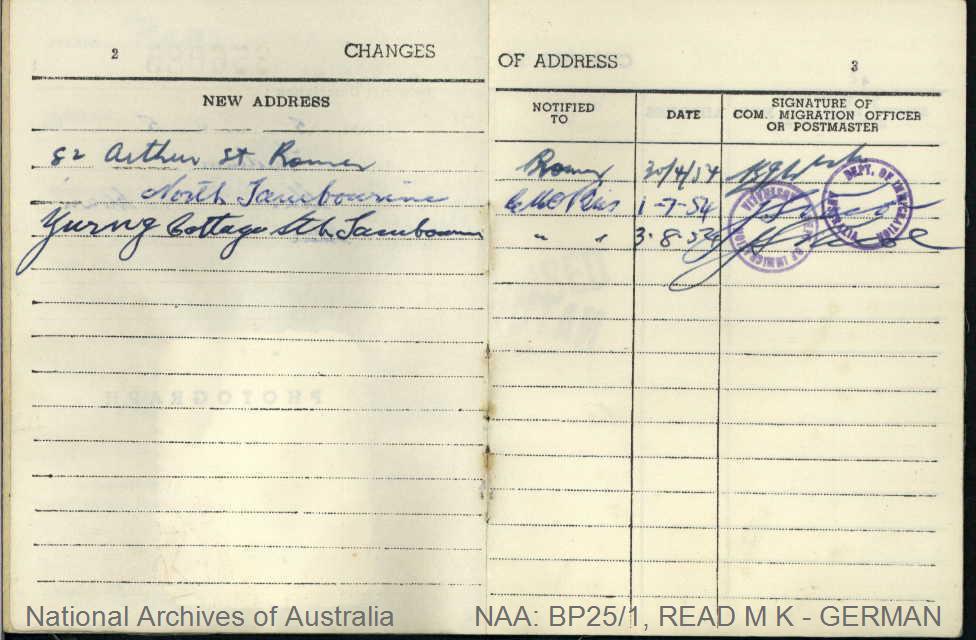 2 CHANGES OF ADDRESS 3
NEW ADDRESS NOTIFIED TO DATE SIGNATURE OF COM. MIGRATION OFFICER OR POSTMASTER
Arthur St Roma Roma 20/4/54
North Tambourine 1-7-54
Cottage Sth Tambourine " " 3.8.54
DEPT. OF IMMIGRATION
OF IMMIGRATION
PHOTOGRAPH
National Archives of Australia NAA: BP25/1, READ M K - GERMAN